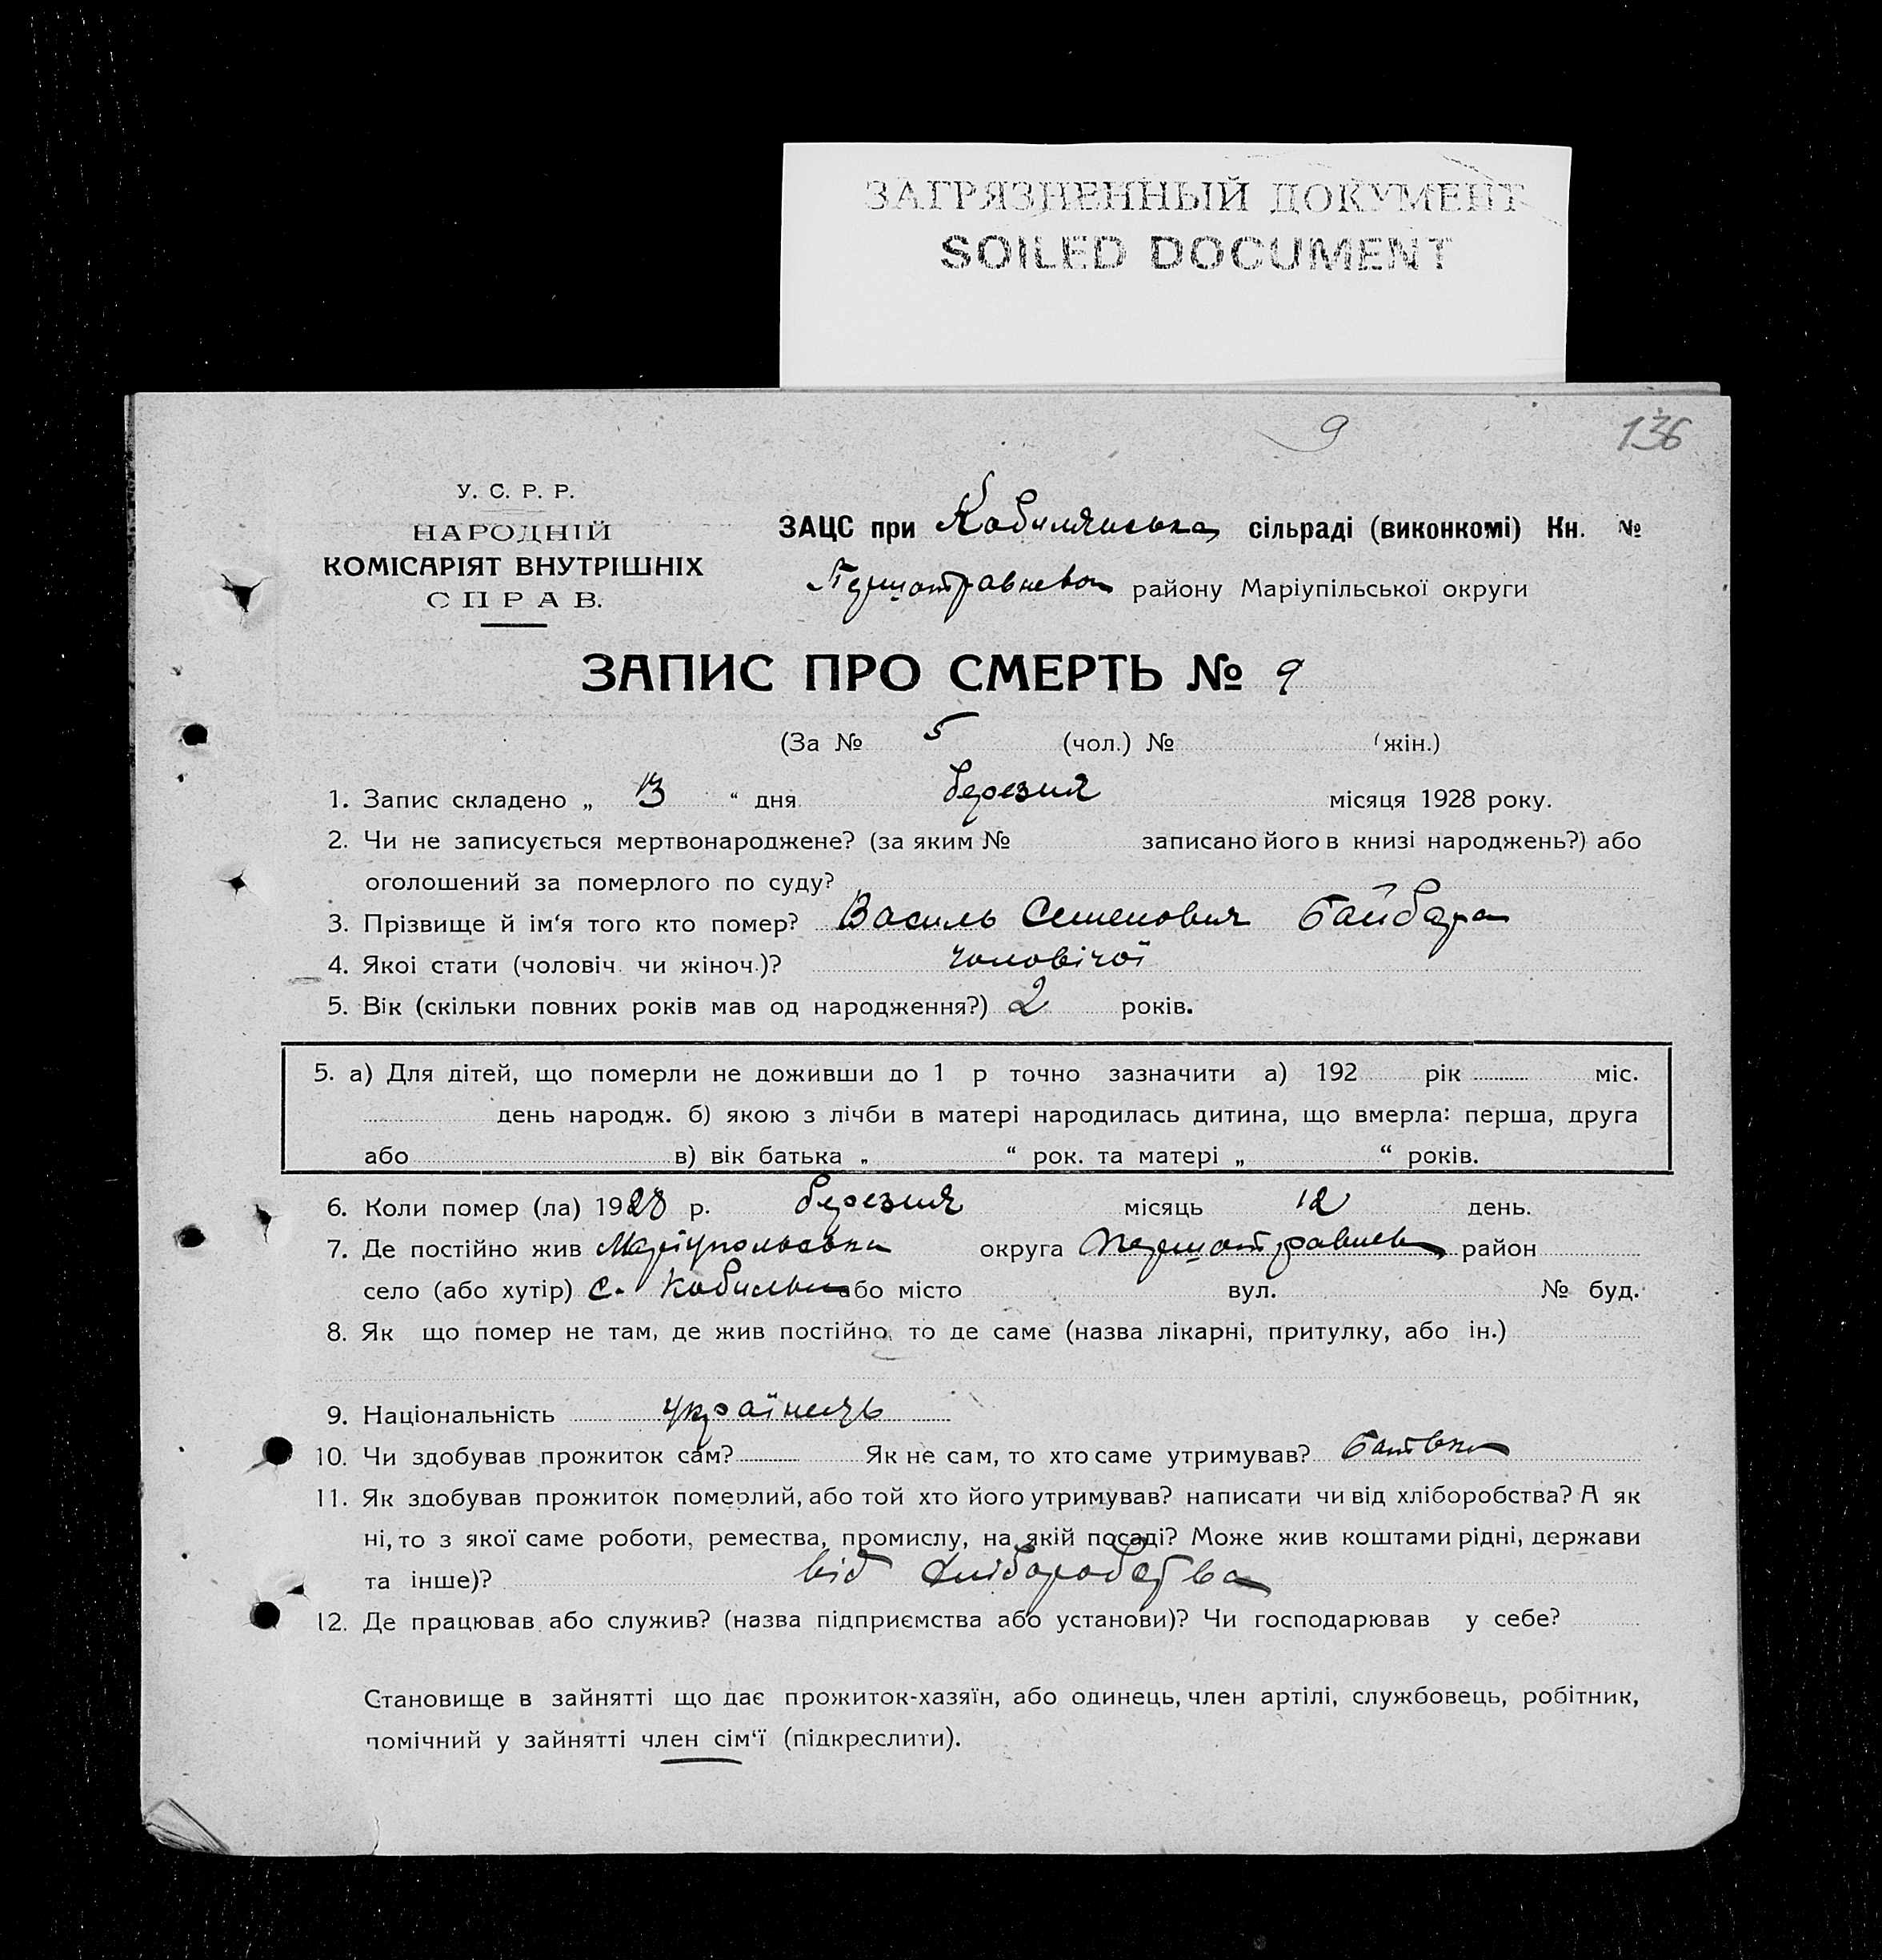 ЗАГРЯЗНЕННЫЙ ДОКУМЕНТ
SOILED DOCUMENT
9 136
У. С. Р. Р.
НАРОДНІЙ
КОМІСАРІЯТ ВНУТРІШНІХ
СПРАВ.
ЗАЦС при Кобилянська сільраді (виконкомі) Кн. №
Першотравневого району Маріупільської округи
ЗАПИС ПРО СМЕРТЬ № 9
(За № 5 (чол.) № (жін.)
1. Запис складено „ 13 “ дня березня місяця 1928 року.
2. Чи не записується мертвонароджене? (за яким № записано його в книзі народжень?) або
оголошений за померлого по суду?
3. Прізвище й ім‘я того кто помер? Василь Семенович Байбара
4. Якоі стати (чоловіч. чи жіноч.)? чоловічої
5. Вік (скільки повних років мав од народження?) 2 років.
5. а) Для дітей, що померли не доживши до 1 р точно зазначити а) 192 рік міс.
день народж. б) якою з лічби в матері народилась дитина, що вмерла: перша, друга
або в) вік батька „ “ рок. та матері „ “ років.
6. Коли помер (ла) 1928 р. березня місяць 12 день.
7. Де постійно жив Маріупольська округа Першотравнев район
село (або хутір) с. Кобильне або місто вул. № буд.
8. Як що помер не там, де жив постійно, то де саме (назва лікарні, притулку, або ін.)
9. Національність українець
10. Чи здобував прожиток сам? Як не сам, то хто саме утримував? батьки
11. Як здобував прожиток померлий, або той хто його утримував? написати чи від хліборобства? А як
ні, то з якої саме роботи, ремества, промислу, на якій посаді? Може жив коштами рідні, держави
та інше)? від хліборобства
12. Де працював або служив? (назва підприємства або установи)? Чи господарював у себе?
Становище в зайнятті що дає прожиток-хазяїн, або одинець, член артілі, службовець, робітник,
помічний у зайнятті член сім‘ї (підкреслити).